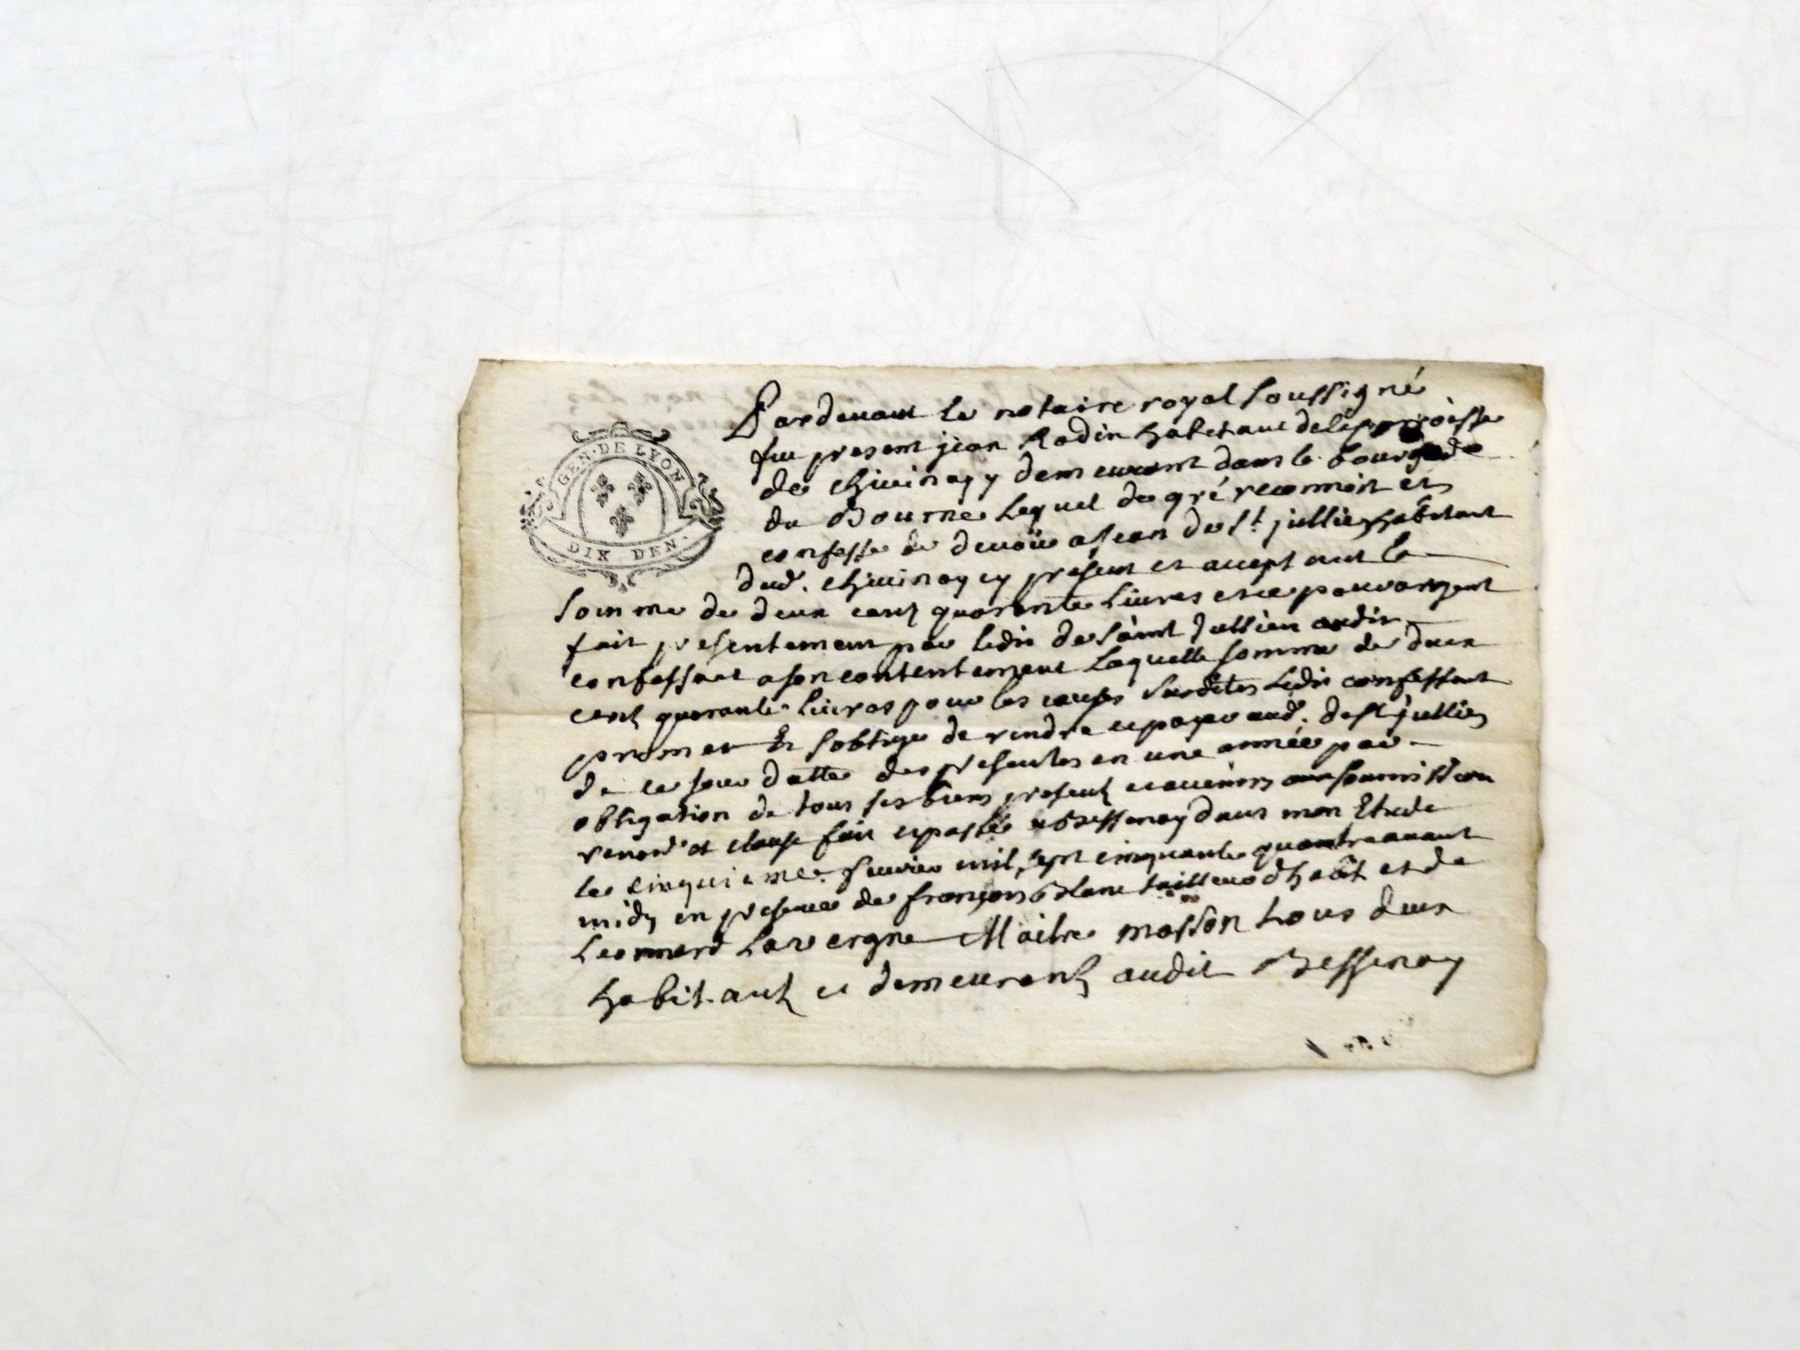 GEN. DE LYON
DIX DEN.
Pardevant le notaire royal soussigné
fut present jean Rodin habitant de la parroisse
de chivinay y demeurant dans le bourg de
du Bourne Lequel de gré reconnoit et
confesse de devoir a jean de st. jullien habitant
dud. chivinay cy présent et acceptant la
somme de deux cent quarante Livres et ce pour argent
fait présentement par ledit de saint Jullien audit
confessant a son contentement Laquelle somme de deux
cent quarante Livres pour les causes susdites Ledit confessant
promet et soblige de rendre et payer aud. de st jullien
de ce jour datte des presentes en une année par
obligation de tous ses biens present et avenirs soumission
renon. et clause fait et passé a Bessenay dans mon Etude
le cinquieme fevrier mil sept cinquante quatre avant
midy en presence de françois Blanc tailleur d'habit et de
Leonnard Lavergne Maitre masson tous deux
habitant et demeurant audit Bessenay